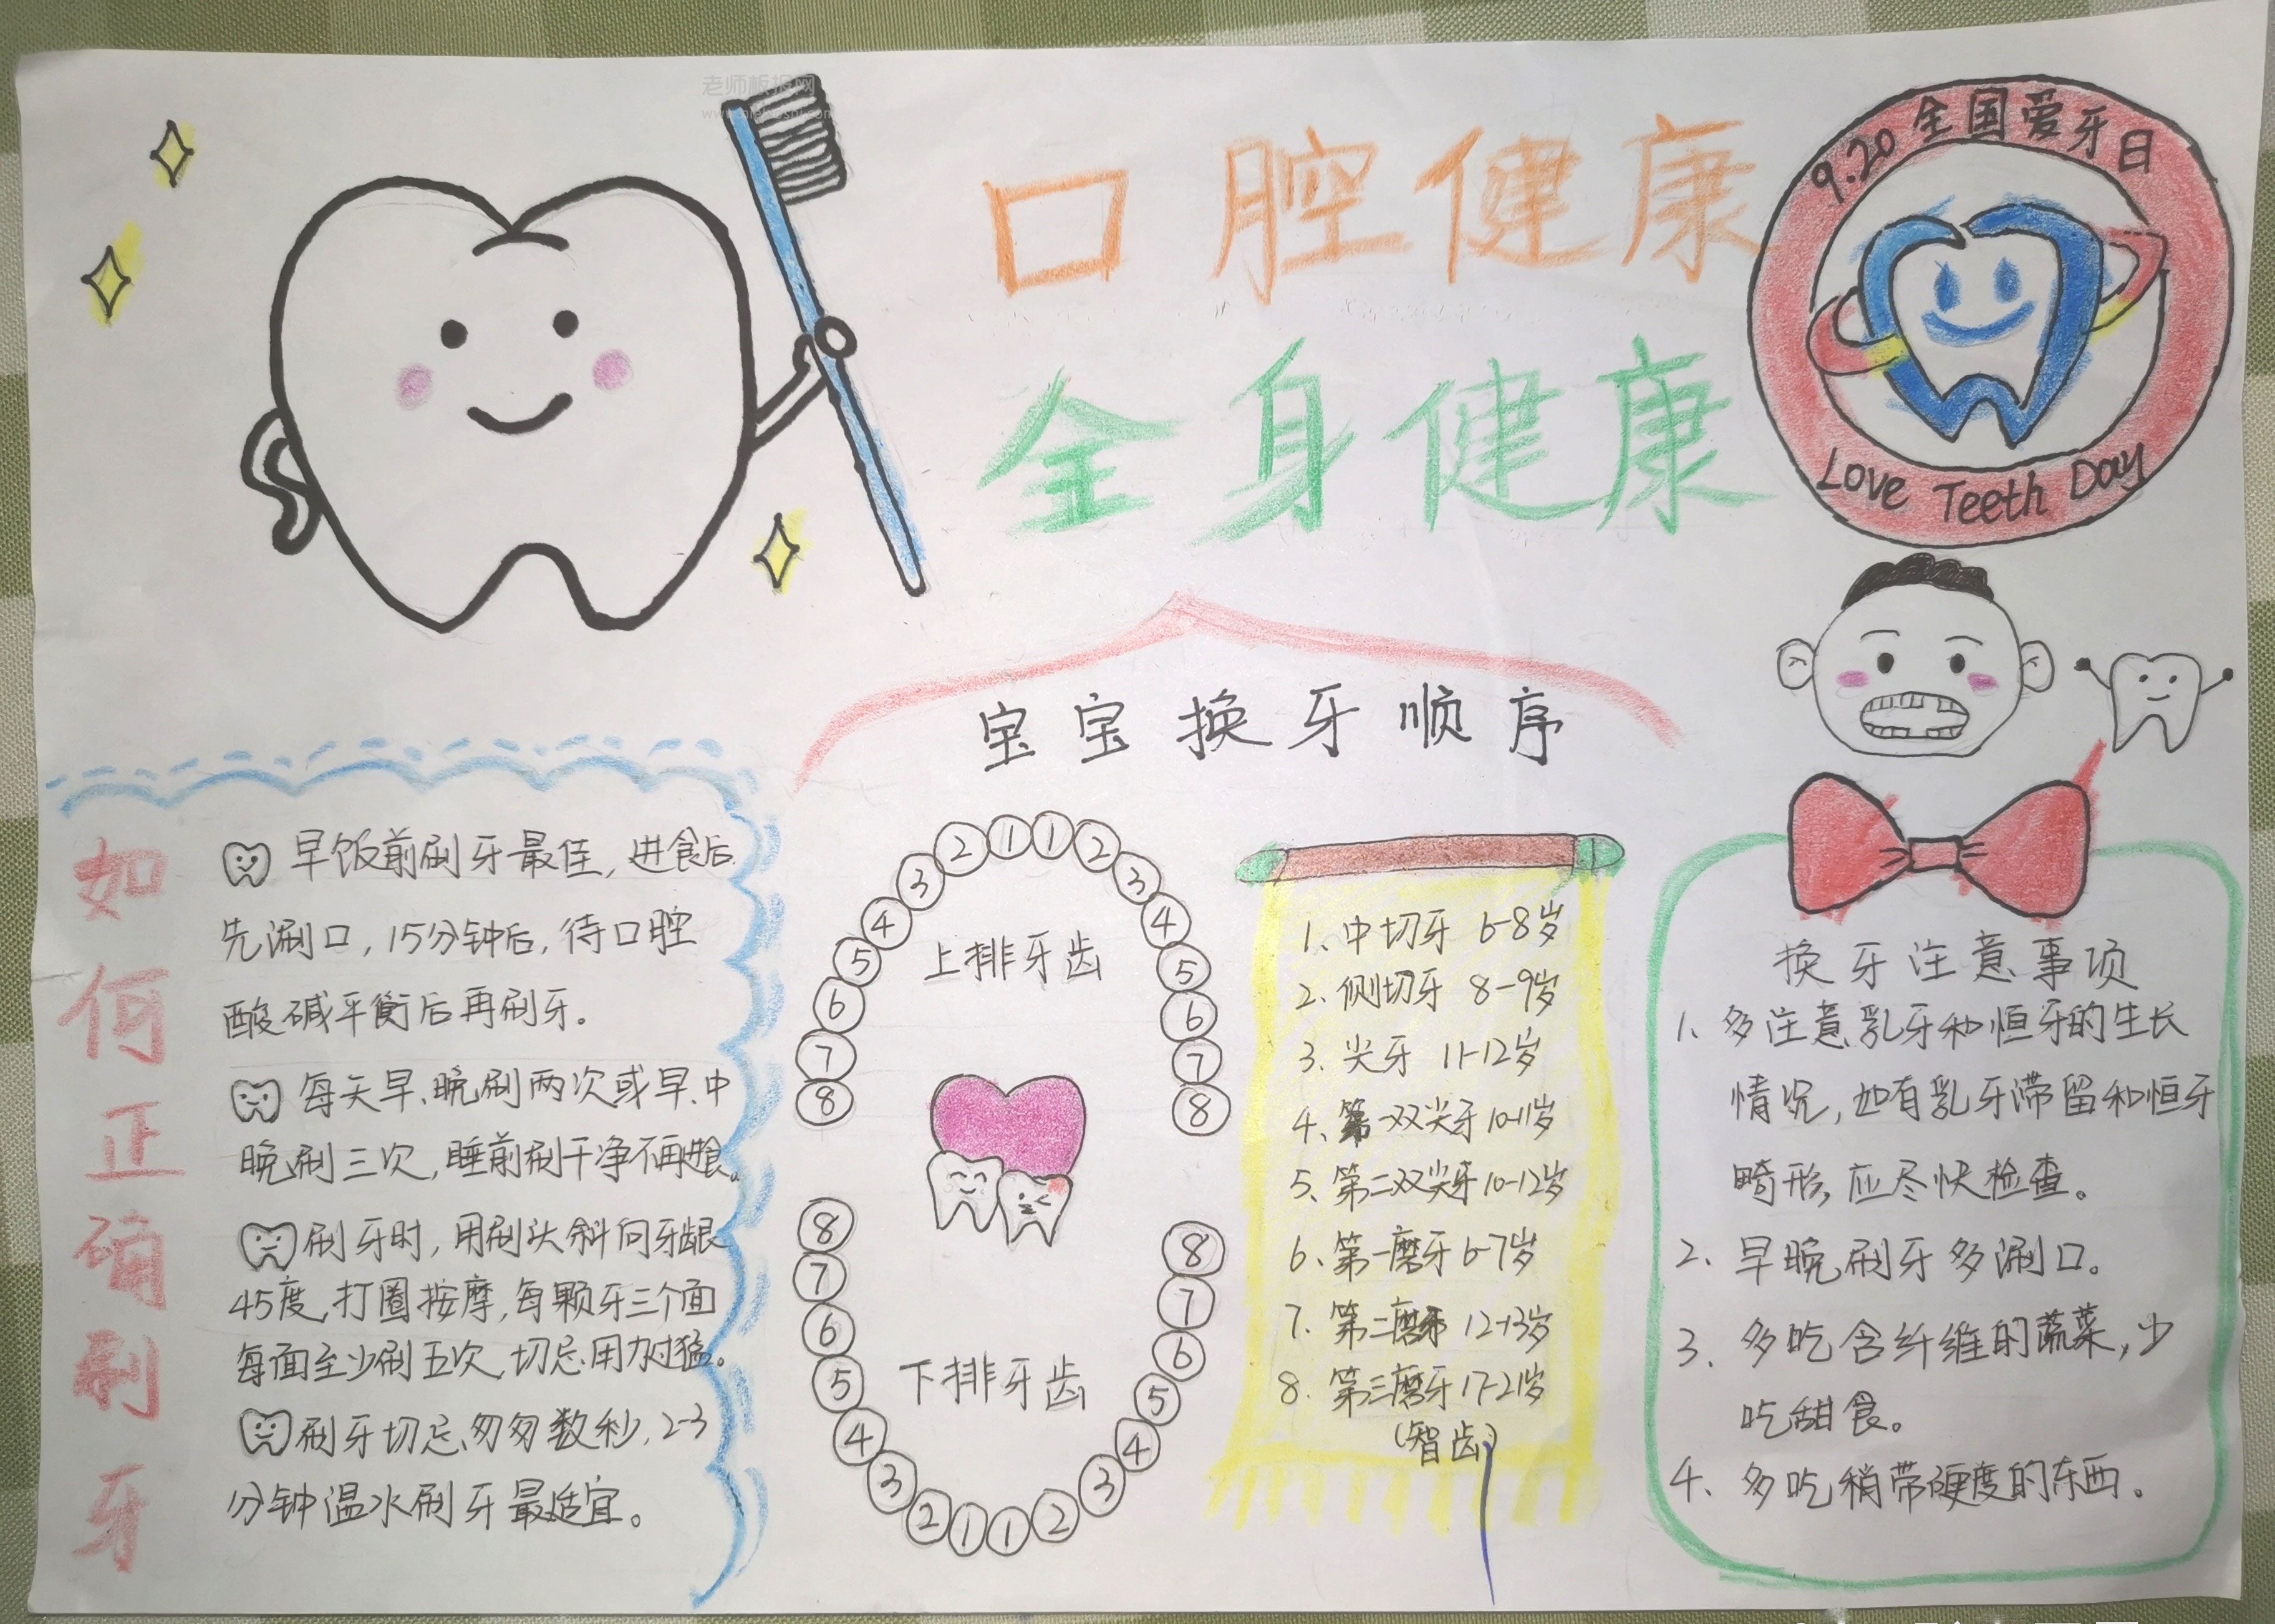 老师板报网
口腔健康
全身健康
9.20全国爱牙日
Love Teeth Day
如何正确刷牙
早饭前刷牙最佳，进食后
先涮口，15分钟后，待口腔
酸碱平衡后再刷牙。
每天早、晚刷两次或早、中
晚刷三次，睡前刷干净不再进食。
刷牙时，用刷头斜向牙龈
45度，打圈按摩，每颗牙三个面
每面至少刷五次，切忌用力过猛。
刷牙切忌匆匆数秒，2-3
分钟温水刷牙最适宜。
宝宝换牙顺序
上排牙齿
1 2 3 4 5 6 7 8
1 2 3 4 5 6 7 8
下排牙齿
8 7 6 5 4 3 2 1
8 7 6 5 4 3 2 1
1、中切牙 6-8岁
2、侧切牙 8-9岁
3、尖牙 11-12岁
4、第一双尖牙 10-11岁
5、第二双尖牙 10-12岁
6、第一磨牙 6-7岁
7、第二磨牙 12-13岁
8、第三磨牙 17-21岁
（智齿）
换牙注意事项
1、多注意乳牙和恒牙的生长
情况，如有乳牙滞留和恒牙
畸形，应尽快检查。
2、早晚刷牙多涮口。
3、多吃含纤维的蔬菜，少
吃甜食。
4、多吃稍带硬度的东西。